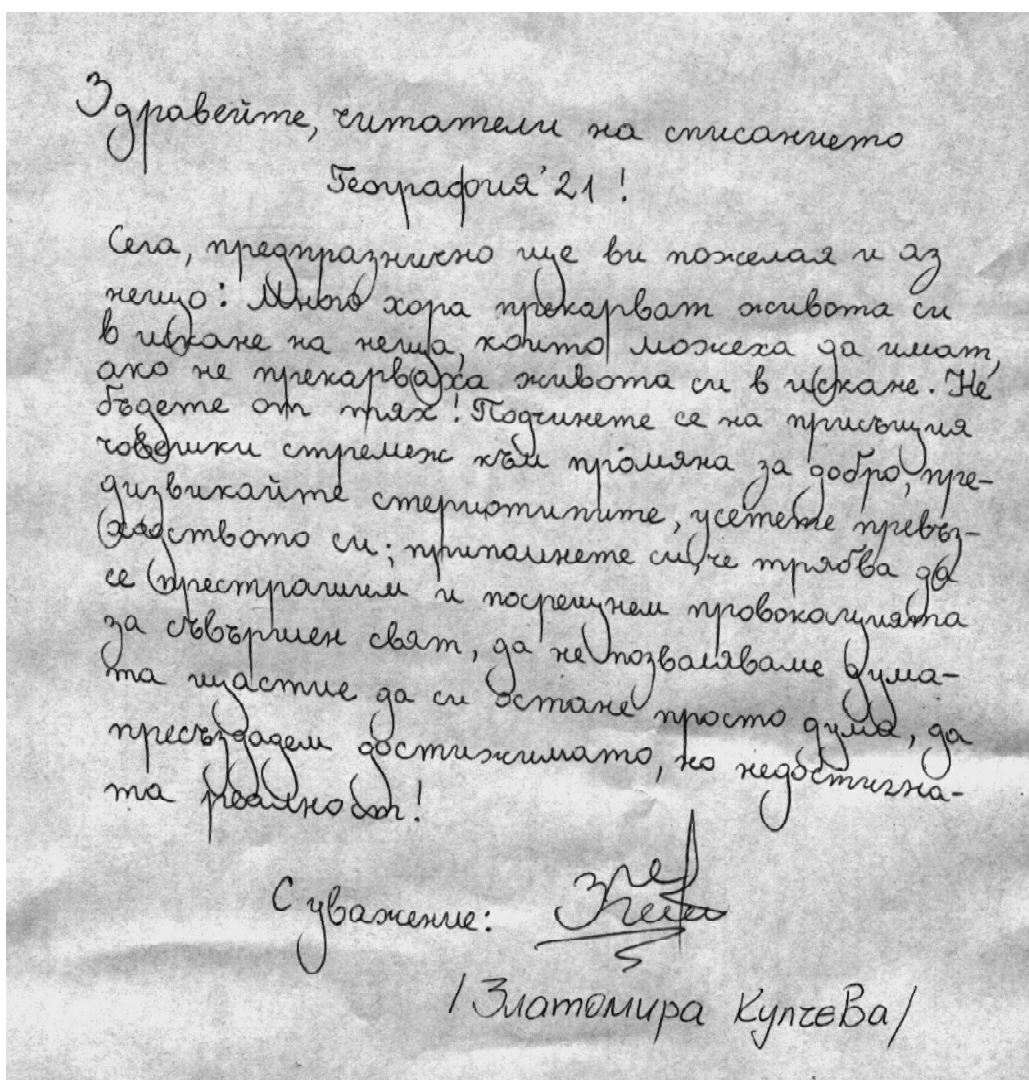 Здравейте, читатели на списанието
География'21!
Сега, предпразнично ще ви пожелая и аз
нещо: Много хора прекарват живота си
в искане на неща, които можеха да имат,
ако не прекарваха живота си в искане. Не
бъдете от тях! Подчинете се на присъщия
човешки стремеж към промяна за добро, пре-
дизвикайте стериотипите, усетете превъз-
ходството си; припомнете си, че трябва да
се престрашим и посрещнем провокацията
за съвършен свят, да не позволяваме дума-
та щастие да си остане просто дума, да
пресъздадем достижимато, но недостигна-
та реалност!
С уважение:
/Златомира Купчева/